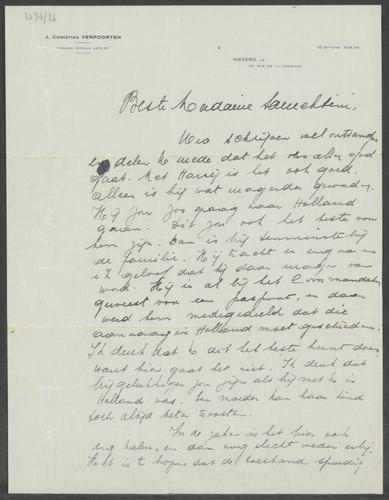 2676/26
J. CHRISTIAN VERPOORTEN
TÉLÉPHONE 209.39
ANVERS, LE
Beste Madame
Uw schrijven wel ontvangen
en delen U mede dat het ons alles goed
gaat. Met Harry is het ook goed.
Alleen is hij wat magerder geworden.
Hij zou zoo graag naar Holland
gaan. Dit zou ook het beste voor
hem zijn. Dan is hij tenminste bij
de familie. Hij tracht er erg naar en
ik geloof dat hij daar mager van
word. Hij is al bij het Commandant
geweest voor een paspoort, en daar
werd hem medegedeeld dat die
aanvraag in Holland moet geschieden.
Ik denk dat U dit het beste kunt doen,
want hier gaat het niet. Ik denk dat
hij gelukkiger zou zijn als hij met U in
Holland was. Een moeder kan haar kind
toch altijd beter troosten.
In de zaken is het hier ook
erg kalm, en dan nog slecht weder erbij.
Het is te hopen dat de toestand spoedig